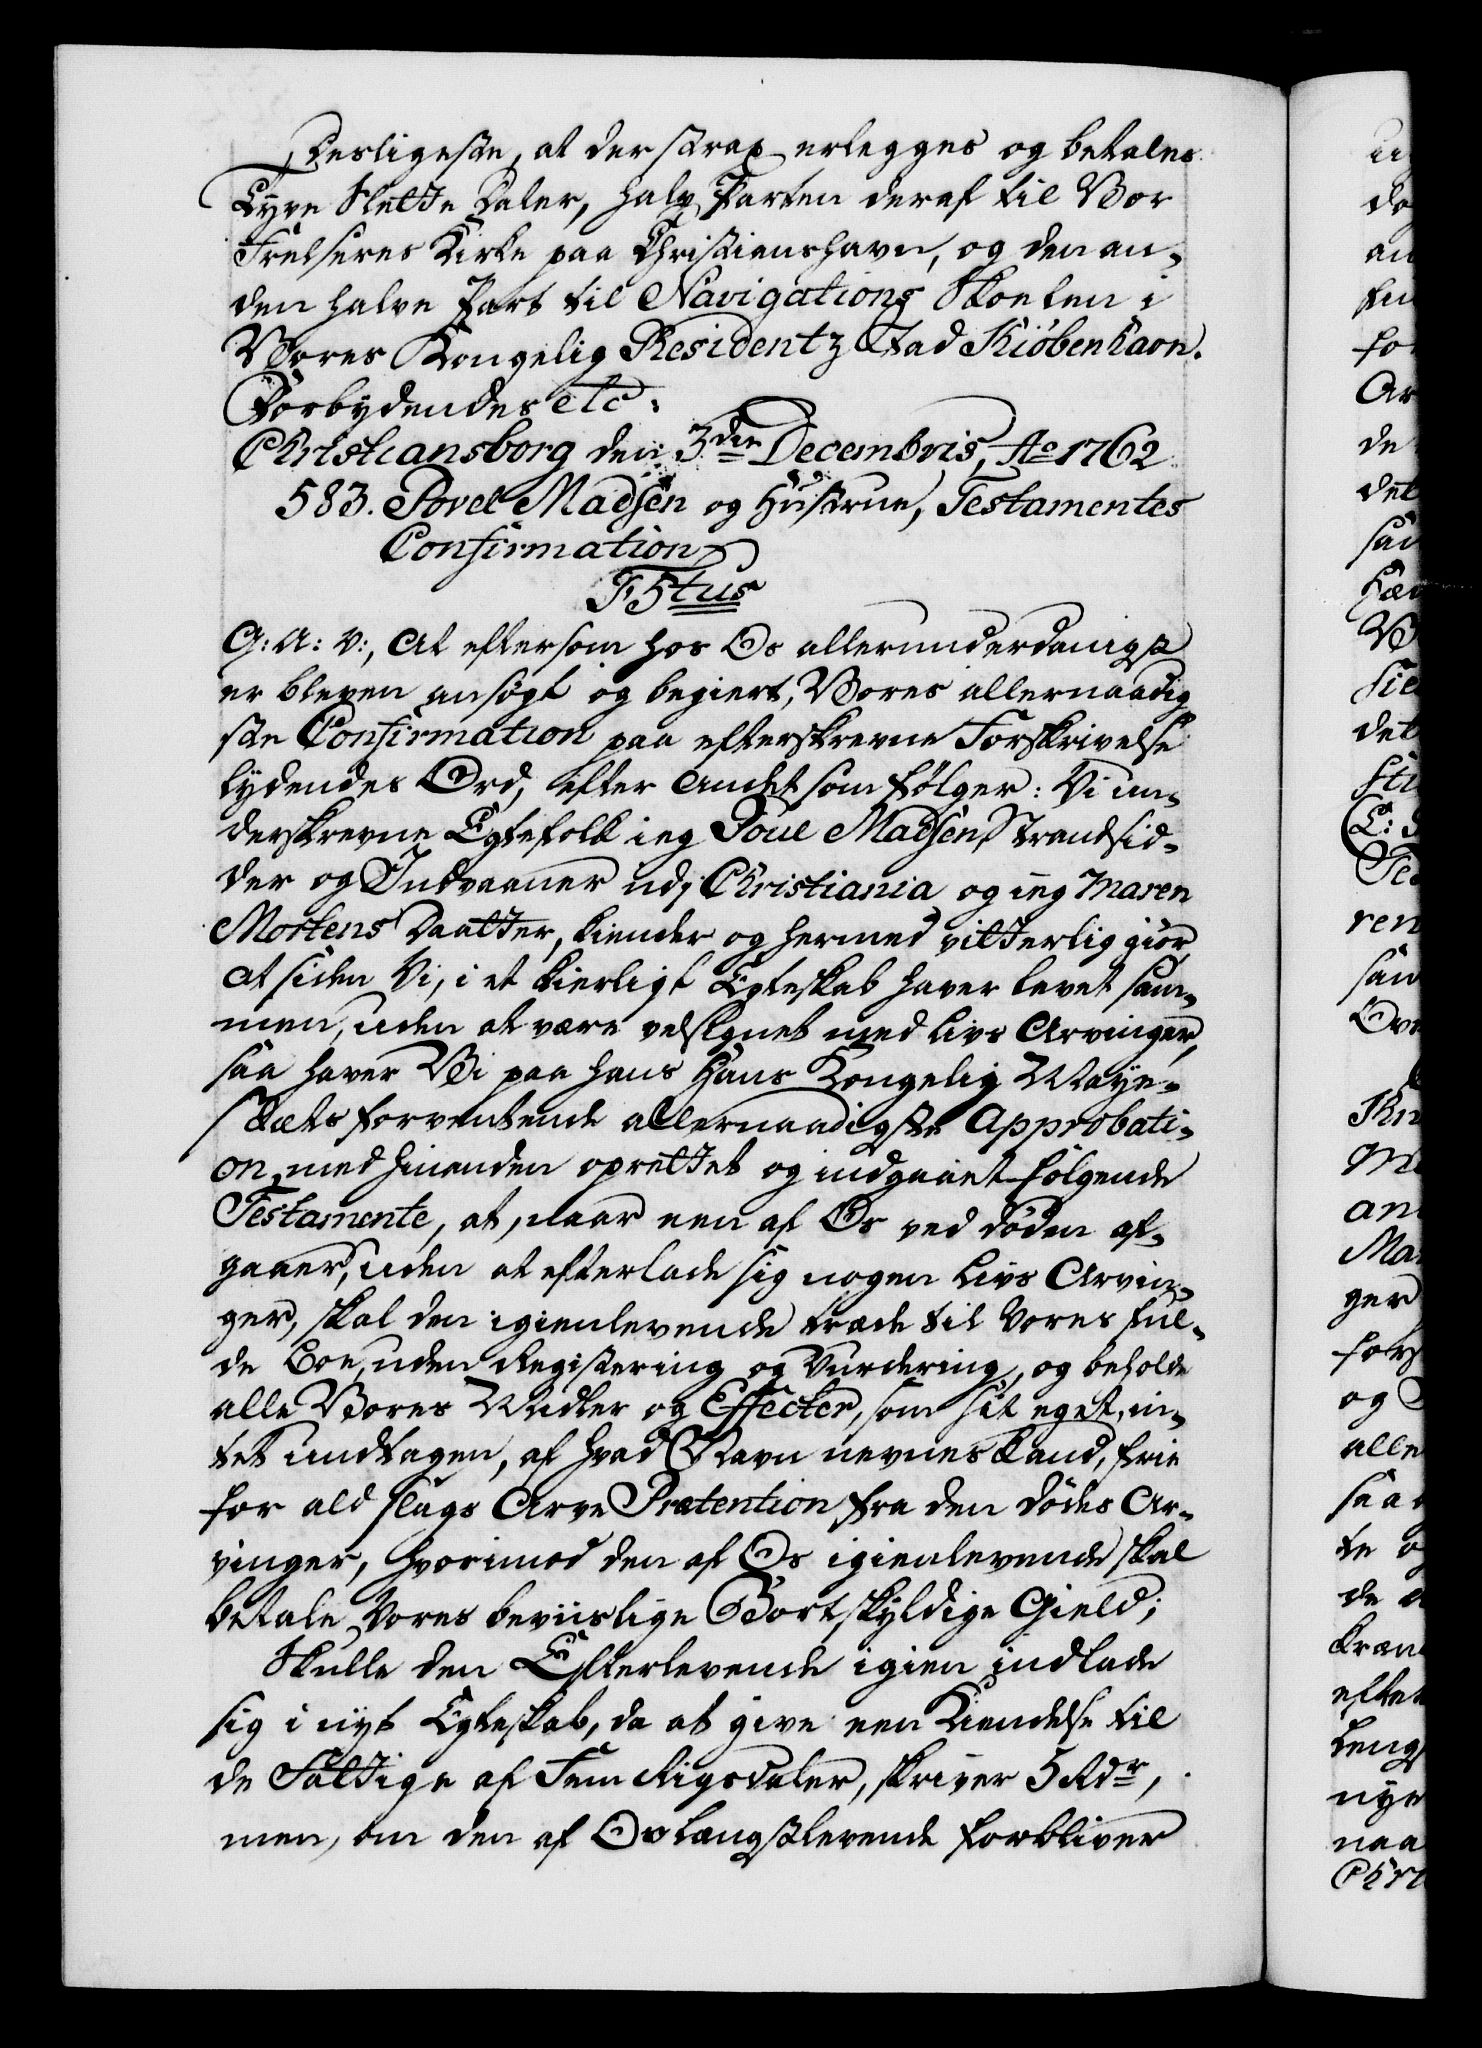 Desligeste, at der strax erlegges og betales
Tyve Slette Daler, halv Parten deraf til Vor
Frelseres Kirke paa Christianshavn, og den an-
den halve Part til Navigations Skolen i
Vores Kongelig Residentz Stad Kiöbenhavn.
Forbydendes etc:
Christiansborg den 3die Decembris, Ao 1762
583. Povel Madsen og Hustrue, Testamentes
Confirmation
F 5tus
G: A: V:, At eftersom hos Os allerunderdanigst
er bleven ansøgt og begiert, Vores allernaadig
ste Confirmation paa efterskrevne Forskrivelse
lydendes Ord, efter Andet som følger: Vi un-
derskrevne Egtefolk ieg Poul Madsen, Strandsid-
der og Indvaaner ud i Christiania og ieg Maren
Mortens Daatter, kiender og hermed vitterlig giør,
at siden Vi, i et kierligt Egteskab haver levet sam-
men, uden at være velsignet med Livs Arvinger,
saa haver Vi paa hans Hans Kongelig Maye-
stæts forventende allernaadigste Approbati-
on, med hinanden oprettet og indgaaet følgende
Testamente, at, naar een af Os ved døden af-
gaaer, uden at efterlade sig nogen Livs Arvin-
ger, skal den igienlevende træde til Vores ful-
de Boe, uden Registering og Vurdering, og beholde
alle Vores Midler og Effecter, som sit eget, in-
tet undtagen, af hvad Navn nevnes kand, frie
for ald slags Arve Prætention fra den dødes Ar-
vinger, hvorimod den af Os igienlevende skal
betale Vores beviislige Bortskyldige Gield;
Skulle den Efterlevende igien indlade
sig i nyt Egteskab, da at give een Kiendelse til
de Fattige af Fem Rigsdaler, skriver 5 Rdr,
men, om den af Os længstlevende forbliver